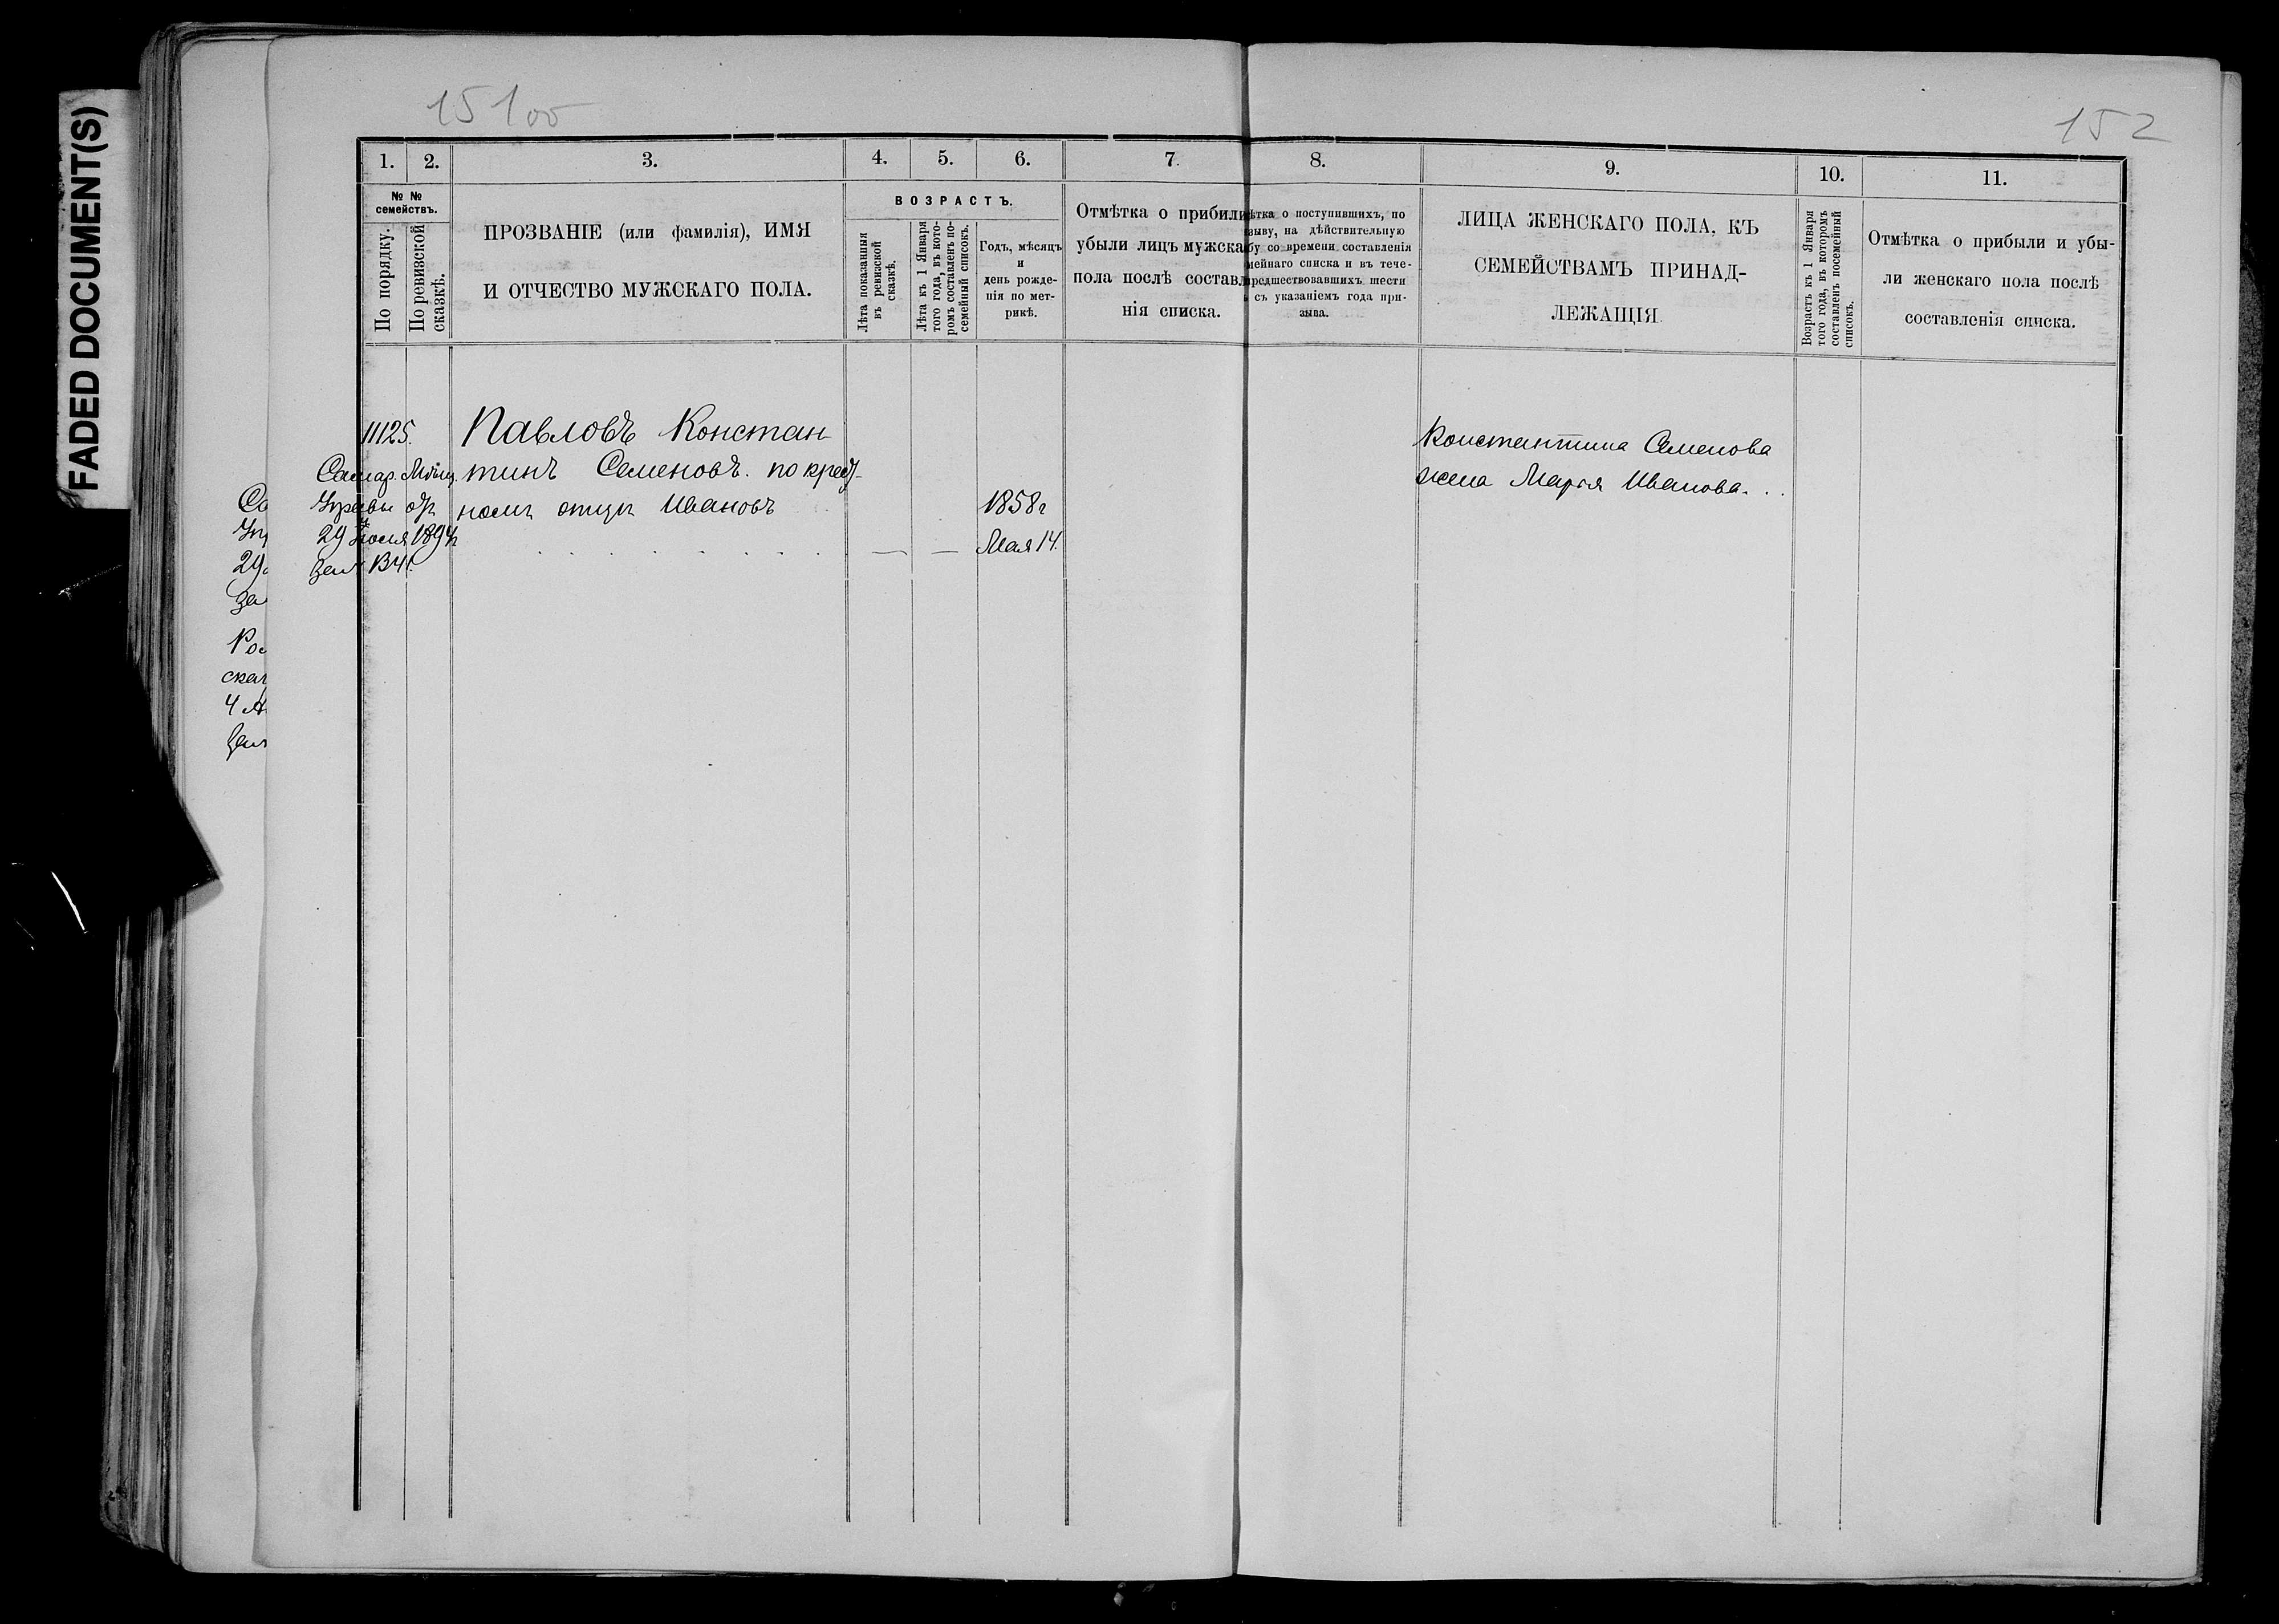 FADED DOCUMENT(S)
15100
152
1. 2. 3. 4. 5. 6. 7. 8. 9. 10. 11.
№ №
семействъ.
По порядку.
По ревизской
сказкѣ.
ПРОЗВАНІЕ (или фамилія), ИМЯ
И ОТЧЕСТВО МУЖСКАГО ПОЛА.
ВОЗРАСТЪ.
Лѣта показанныя
въ ревизской
сказкѣ.
Лѣта къ 1 Января
того года, въ кото-
ромъ составленъ по-
семейный списокъ.
Годъ, мѣсяцъ
и
день рожде-
нія по мет-
рикѣ.
Отмѣтка о прибыли
убыли лицъ мужска
пола послѣ составл
нія списка.
ѣтка о поступившихъ, по
зыву, на дѣйствительную
бу со времени составленія
мейнаго списка и въ тече-
предшествовавшихъ шести
съ указаніемъ года при-
зыва.
ЛИЦА ЖЕНСКАГО ПОЛА, КЪ
СЕМЕЙСТВАМЪ ПРИНАД-
ЛЕЖАЩІЯ.
Возрастъ къ 1 Января
того года, въ которомъ
составленъ посемейный
списокъ.
Отмѣтка о прибыли и убы-
ли женскаго пола послѣ
составленія списка.
11125.
Самар. Мѣщ.
Управы от
29 Іюля 1894г
Павловъ Констан
тинъ Семеновъ. по крест-
номъ отцѣ Ивановъ
1858г
Мая 14.
Константина Семенова
жена Марія Иванова.
Со
Уп
29
За
Рос
скаг
4 А